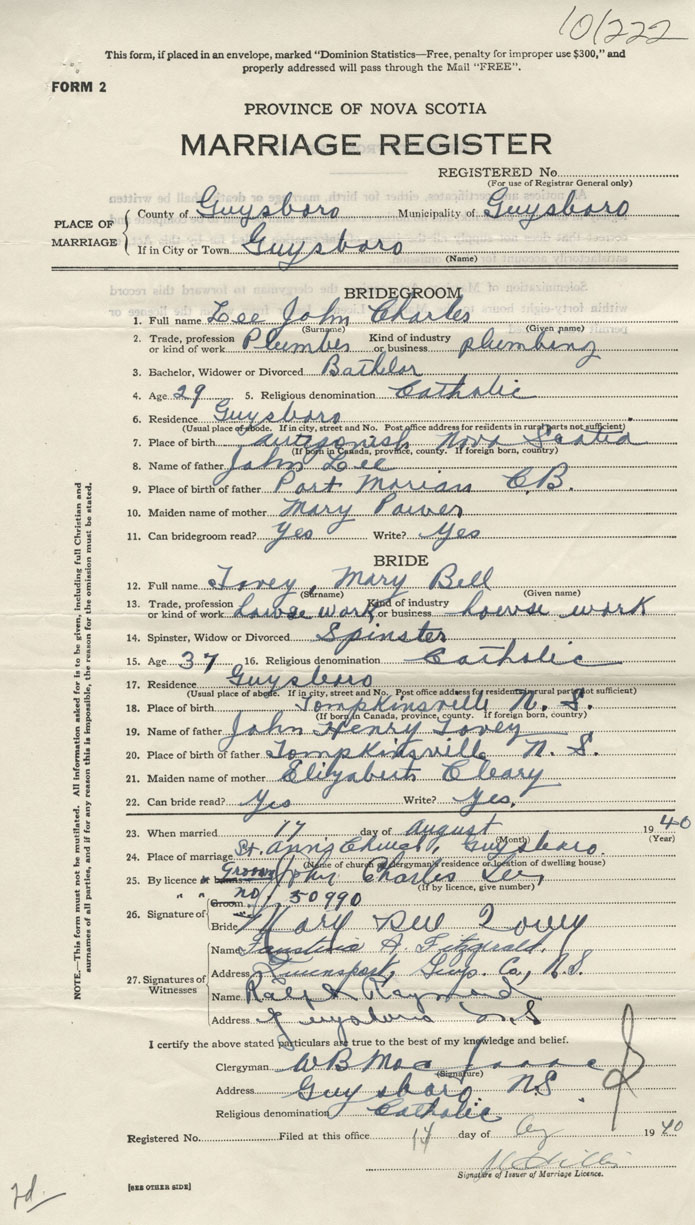 10/222
This form, if placed in an envelope, marked "Dominion Statistics—Free, penalty for improper use $300," and
properly addressed will pass through the Mail "FREE".
FORM 2
PROVINCE OF NOVA SCOTIA
MARRIAGE REGISTER
REGISTERED No.
(For use of Registrar General only)
PLACE OF MARRIAGE
County of Guysboro Municipality of Guysboro
If in City or Town Guysboro
(Name)
BRIDEGROOM
1. Full name Lee John Charles
(Surname) (Given name)
2. Trade, profession or kind of work Plumber Kind of industry or business plumbing
3. Bachelor, Widower or Divorced Bathlor
4. Age 29 5. Religious denomination Catholic
6. Residence Guysboro
(Usual place of abode. If in city, street and No. Post office address for residents in rural parts not sufficient)
7. Place of birth Antigonish Nova Scotia
(If born in Canada, province, county. If foreign born, country)
8. Name of father John Lee
9. Place of birth of father Port Morian C.B.
10. Maiden name of mother Mary Power
11. Can bridegroom read? Yes Write? Yes
BRIDE
12. Full name Tovey, Mary Bell
(Surname) (Given name)
13. Trade, profession or kind of work house work Kind of industry or business house work
14. Spinster, Widow or Divorced Spinster
15. Age 37 16. Religious denomination Catholic
17. Residence Guysboro
(Usual place of abode. If in city, street and No. Post office address for residents in rural parts not sufficient)
18. Place of birth Tompkinsville N. S.
(If born in Canada, province, county. If foreign born, country)
19. Name of father John Henry Tovey
20. Place of birth of father Tompkinsville N. S.
21. Maiden name of mother Elizabeth Cleary
22. Can bride read? Yes Write? Yes.
23. When married 17 day of August 1940
(Month) (Year)
24. Place of marriage St. Ann's Church, Guysboro.
(Name of church or clergyman's residence or location of dwelling house)
25. By licence or banns
(If by licence, give number)
" " no/ 50990
26. Signature of
Groom John Charles Lee
Bride Mary Bell Tovey
27. Signatures of Witnesses
Name Faustina A. Fitzgerald.
Address Queensport, Guys. Co., N.S.
Name Ralph Raymond
Address Guysboro N.S
I certify the above stated particulars are true to the best of my knowledge and belief.
Clergyman WB Mac Isaac
(Signature)
Address Guysboro NS
Religious denomination Catholic
Registered No. Filed at this office 17 day of Aug 1940
Signature of Issuer of Marriage Licence.
[SEE OTHER SIDE]
NOTE.—This form must not be mutilated. All information asked for is to be given, including full Christian and
surnames of all parties, and if for any reason this is impossible, the reason for the omission must be stated.